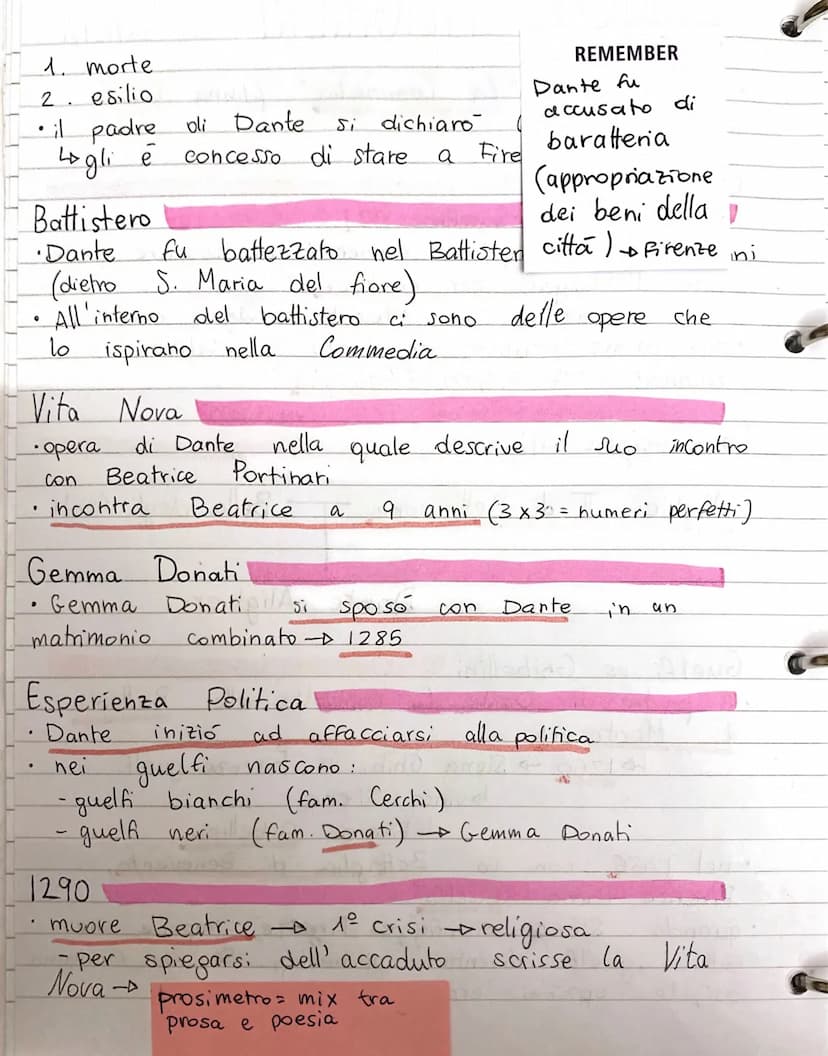 1. morte
2. esilio
• il padre di Dante si dichiarò (
↳ gli è concesso di stare a Fire
REMEMBER
Dante fu
accusato di
baratteria
(appropriazione
dei beni della
città) → Firenze
Battistero
• Dante fu battezzato nel Battister ini
(dietro S. Maria del fiore)
• All'interno del battistero ci sono delle opere che
lo ispirano nella Commedia
Vita Nova
• opera di Dante nella quale descrive il suo incontro
con Beatrice Portinari
• incontra Beatrice a 9 anni (3x3 = numeri perfetti)
Gemma Donati
• Gemma Donati si sposò con Dante in un
matrimonio combinato → 1285
Esperienza Politica
• Dante iniziò ad affacciarsi alla politica
• nei guelfi nascono:
- guelfi bianchi (fam. Cerchi)
- guelfi neri (fam. Donati) → Gemma Donati
1290
• muore Beatrice → 1º crisi → religiosa
- per spiegarsi dell'accaduto scrisse la Vita
Nova →
prosimetro = mix tra
prosa e poesia